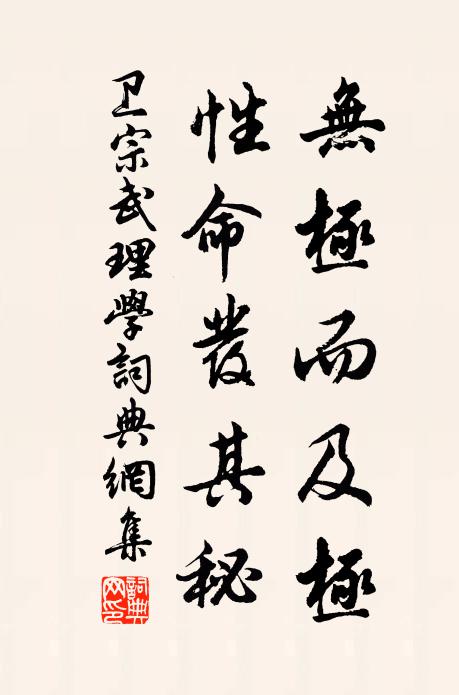 無極而及極
性命發其秘
卫宗武理學詞典網集
詞典网印